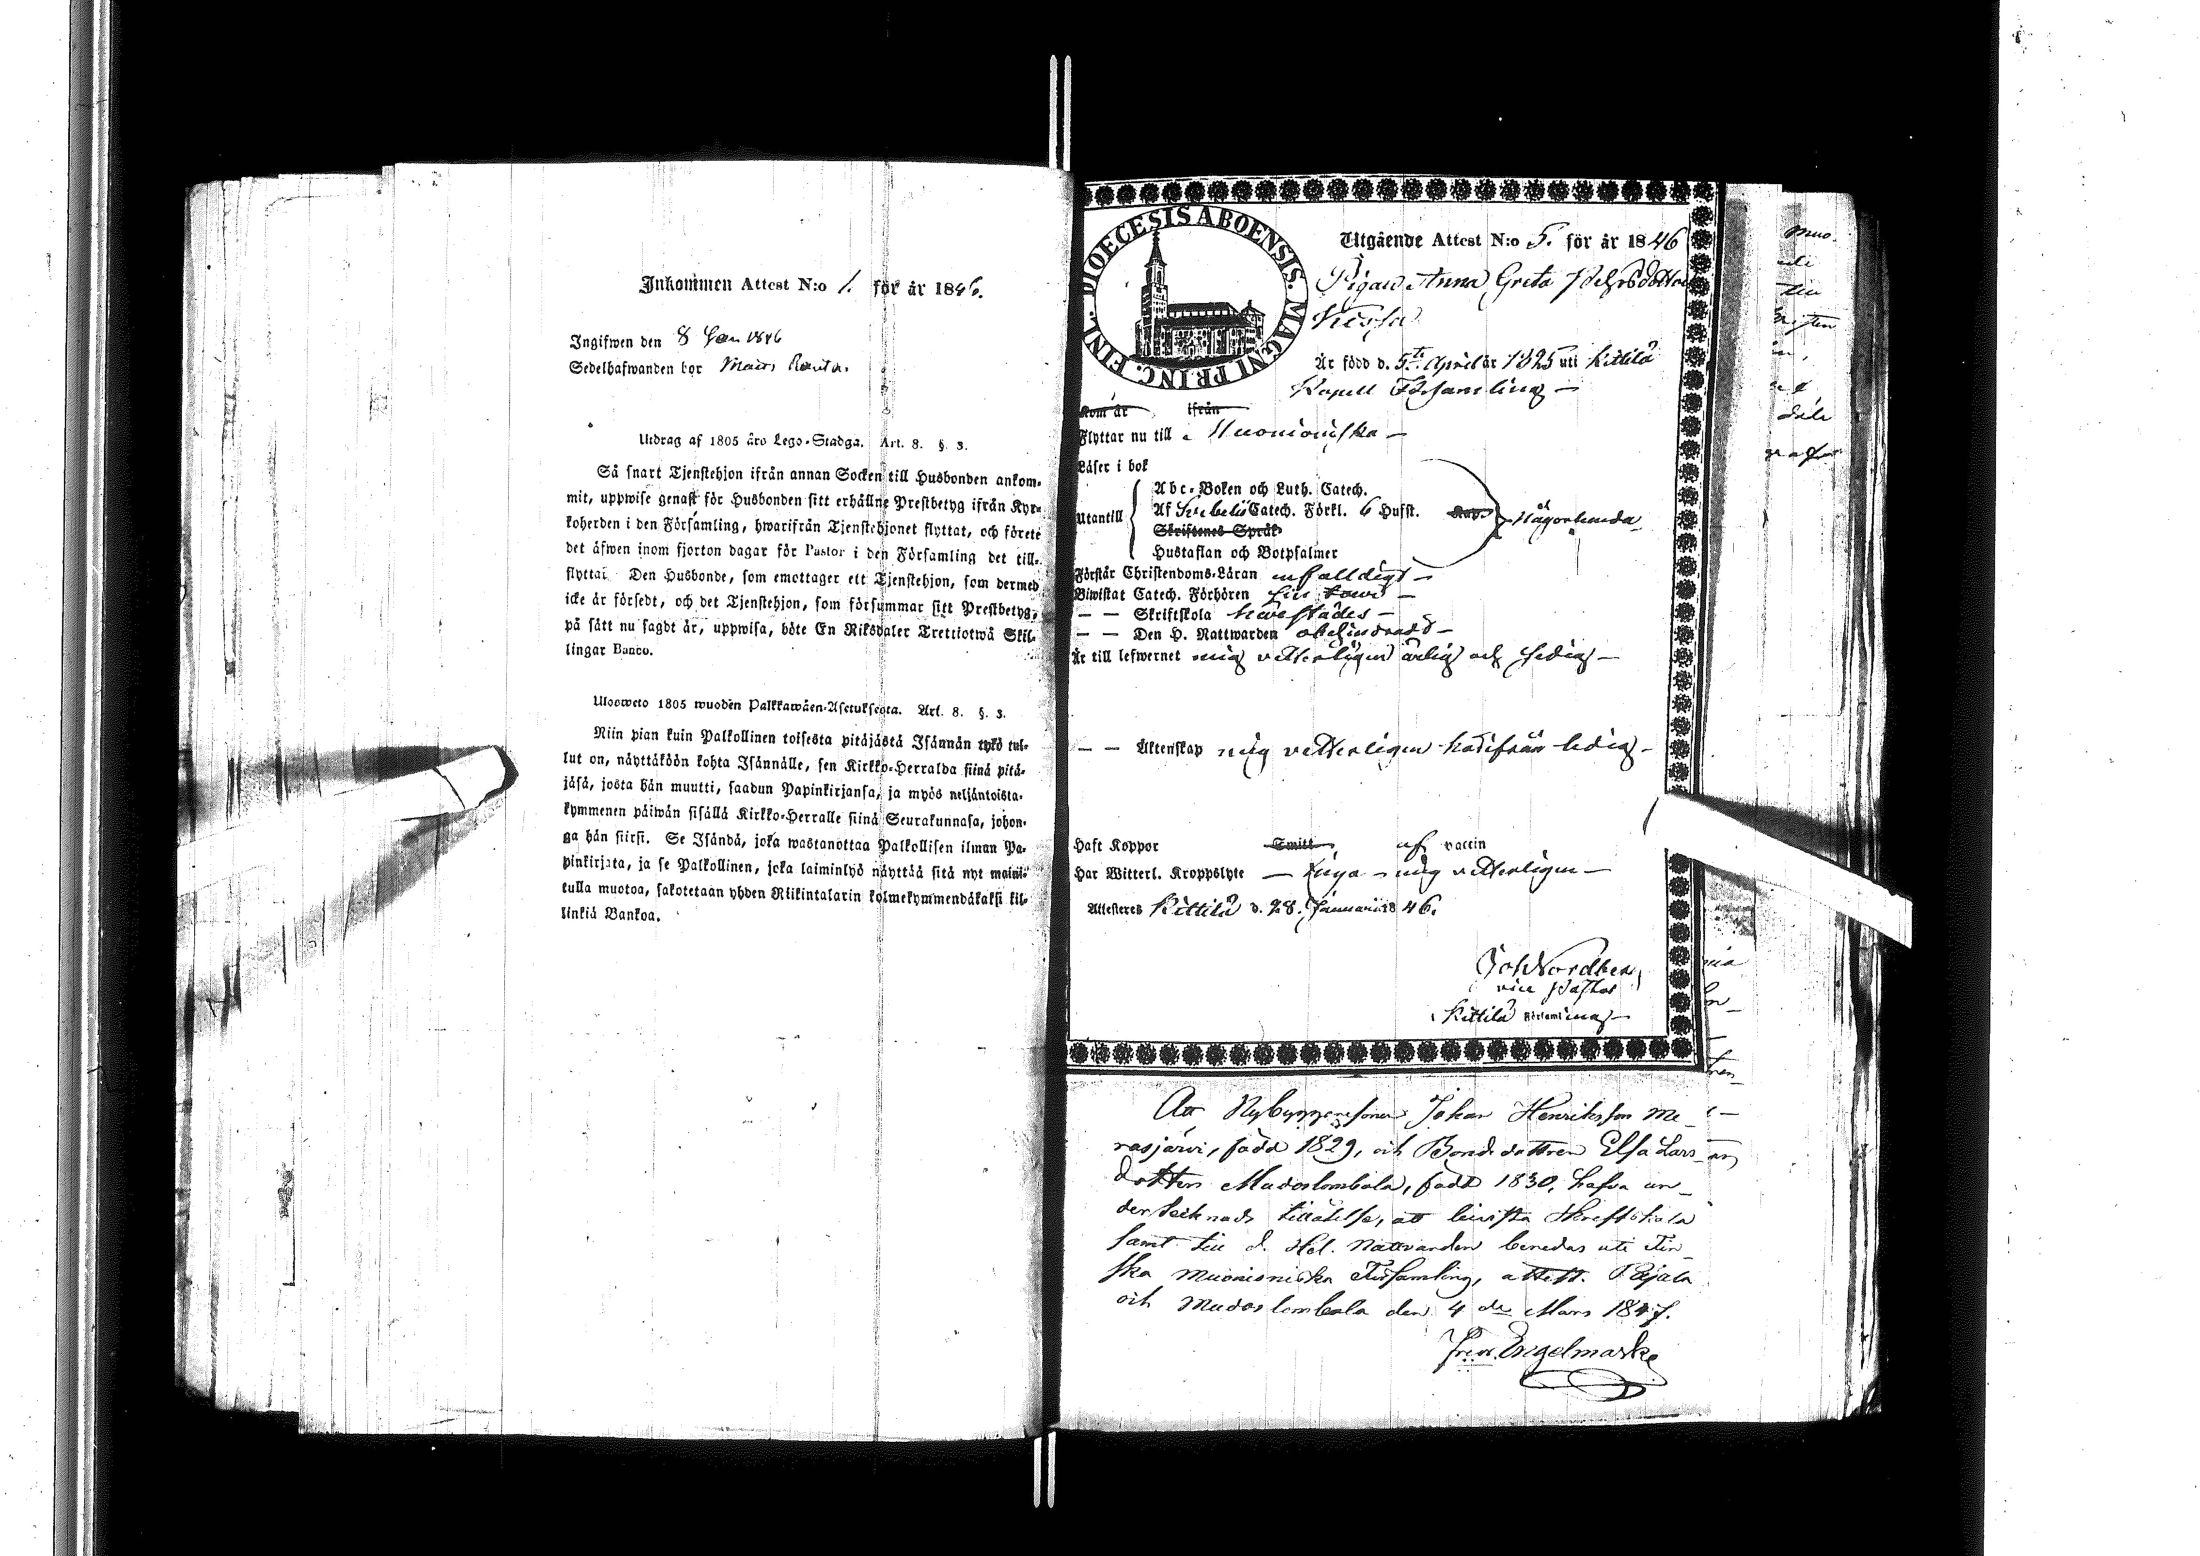 Inkommen Attest N:o 1. för år 1846.
Ingifwen den 8 Jan 1846
Sedelhafwanden bor
Utdrag af 1805 års Lego-Stadga. Art. 8. §. 3.
Så snart Tjenstehjon ifrån annan Socken till Husbonden ankom-
mit, uppwise genast för Husbonden sitt erhållne Prestbetyg ifrån Kyr-
koherden i den Församling, hwarifrån Tjenstehjonet flyttat, och förete
det äfwen inom fjorton dagar för Pastor i den Församling det till-
flyttat. Den Husbonde, som emottager ett Tjenstehjon, som dermed
icke är försedt, och det Tjenstehjon, som försummar sitt Prestbetyg,
på sätt nu sagdt är, uppwisa, böte En Riksdaler Trettiotwå Skil-
lingar Banco.
Ulosweto 1805 wuoden Palkkawäen-Asetuksesta. Art. 8. §. 3.
Niin pian kuin Palkollinen toisesta pitäjästä Isännän tykö tul-
lut on, näyttäköön kohta Isännälle, sen Kirkko-Herralda siinä pitä-
jäsä, josta hän muutti, saadun Papinkirjansa, ja myös neljäntoista-
kymmenen päiwän sisällä Kirkko-Herralle siinä Seurakunnasa, johon-
ga hän siirsi. Se Isändä, joka wastanottaa Palkollisen ilman Pa-
pinkirjata, ja se Palkollinen, joka laiminlyö näyttää sitä nyt maini-
tulla muotoa, sakotetaan yhden Riikintalarin kolmekymmendäkaksi kil-
linkiä Bankoa.
FINL. DIOECESIS ABOENSIS. MAGNI PRINC.
Utgående Attest N:o 5. för år 1846
Pigan Anna Greta
Är född d. 5te April år 1825 uti Kittilä
Kapell Församling
Kom år ifrån
Flyttar nu till Muonioniska
Läser i bok
Abc-Boken och Luth. Catech.
Utantill Af Svebelii Catech. Förkl. 6 Hufst. någorlunda
Skriftenes Språk
Hustaflan och Botpsalmer
Förstår Christendoms-Läran enfalldigt
Biwistat Catech. Förhören
— — Skriftskola härstädes
— — Den H. Nattwarden obehindradt
Är till lefwernet mig vetterligen ärlig och sedig
— — Äktenskap mig vetterligen hädifrån ledig
Haft Koppor Smitt af vaccin
Har Witterl. Kroppslyte — inga mig vetterligen
Attesteras Kittilä d. 28. Januarii 1846.
Joh Nordberg
vice Pastor
i Kittilä Församling
Att Nybyggaresonen Johan Henriksson Me-
rasjärvi, född 1829, och Bondedottren Elsa Lars
dotter Muodoslombola, född 1830, hafva un-
dertecknads tillåtelse, att bivista Skriftskola
samt till d. Hel. Nattvarden beredas uti Fin-
ska Muonioniska Församling, attest. Pajala
och Muodoslombola den 4 de Mars 1847.
Fredr. Engelmark